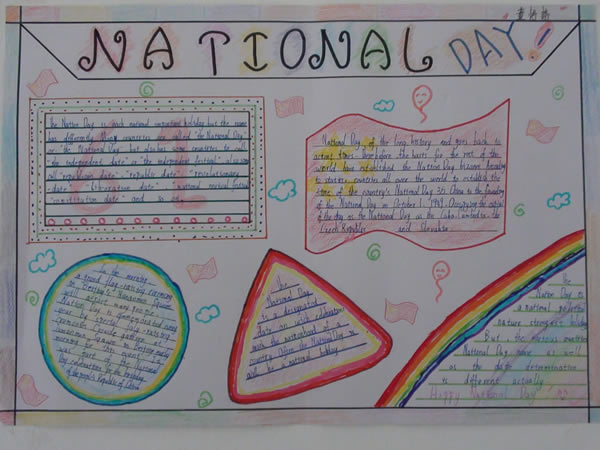 NATIONAL DAY!
The Nation Day is each national important holiday but the name
has differently. Many countries are called "the National Day"
or "the National Day" but also has some countries to call
"the independent date" or "the independent festival" also some
call "republican date" "republic date" "revolutionary
date" "liberation date" "national revival festival"
"constitution date" and so on.
National Day of the long history and goes back to
ancient times. Therefore the basis for the rest of the
world have established the National Day bizarre. According
to statistics countries all over the world to establish the
time of the country's National Day 35 China to the founding
of the National Day on October 1, 1949. Occupying the capital
of the day as the National Day as the Cuba Cambodia the
Czech Republic and Slovakia.
In the morning,
a grand flag-raising ceremony
in Beijing's Tiananmen Square
will attract many people.
Nation Day is commemorated every
year by special flag-raising
ceremonies. Crowds gather
Tiananmen Square in Beijing early
morning because the event
was part of the National
Day celebration for the birthday
of the People's Republic of China
The
National Day
is a designated
date on which celebrations
mark the nationhood of a
country. Often the National Day
will be a national holiday
The
Nation Day is
a national political
nature strongest holiday
But the various countries
National Day name as well
as the date determination
is different usually
Happy National Day